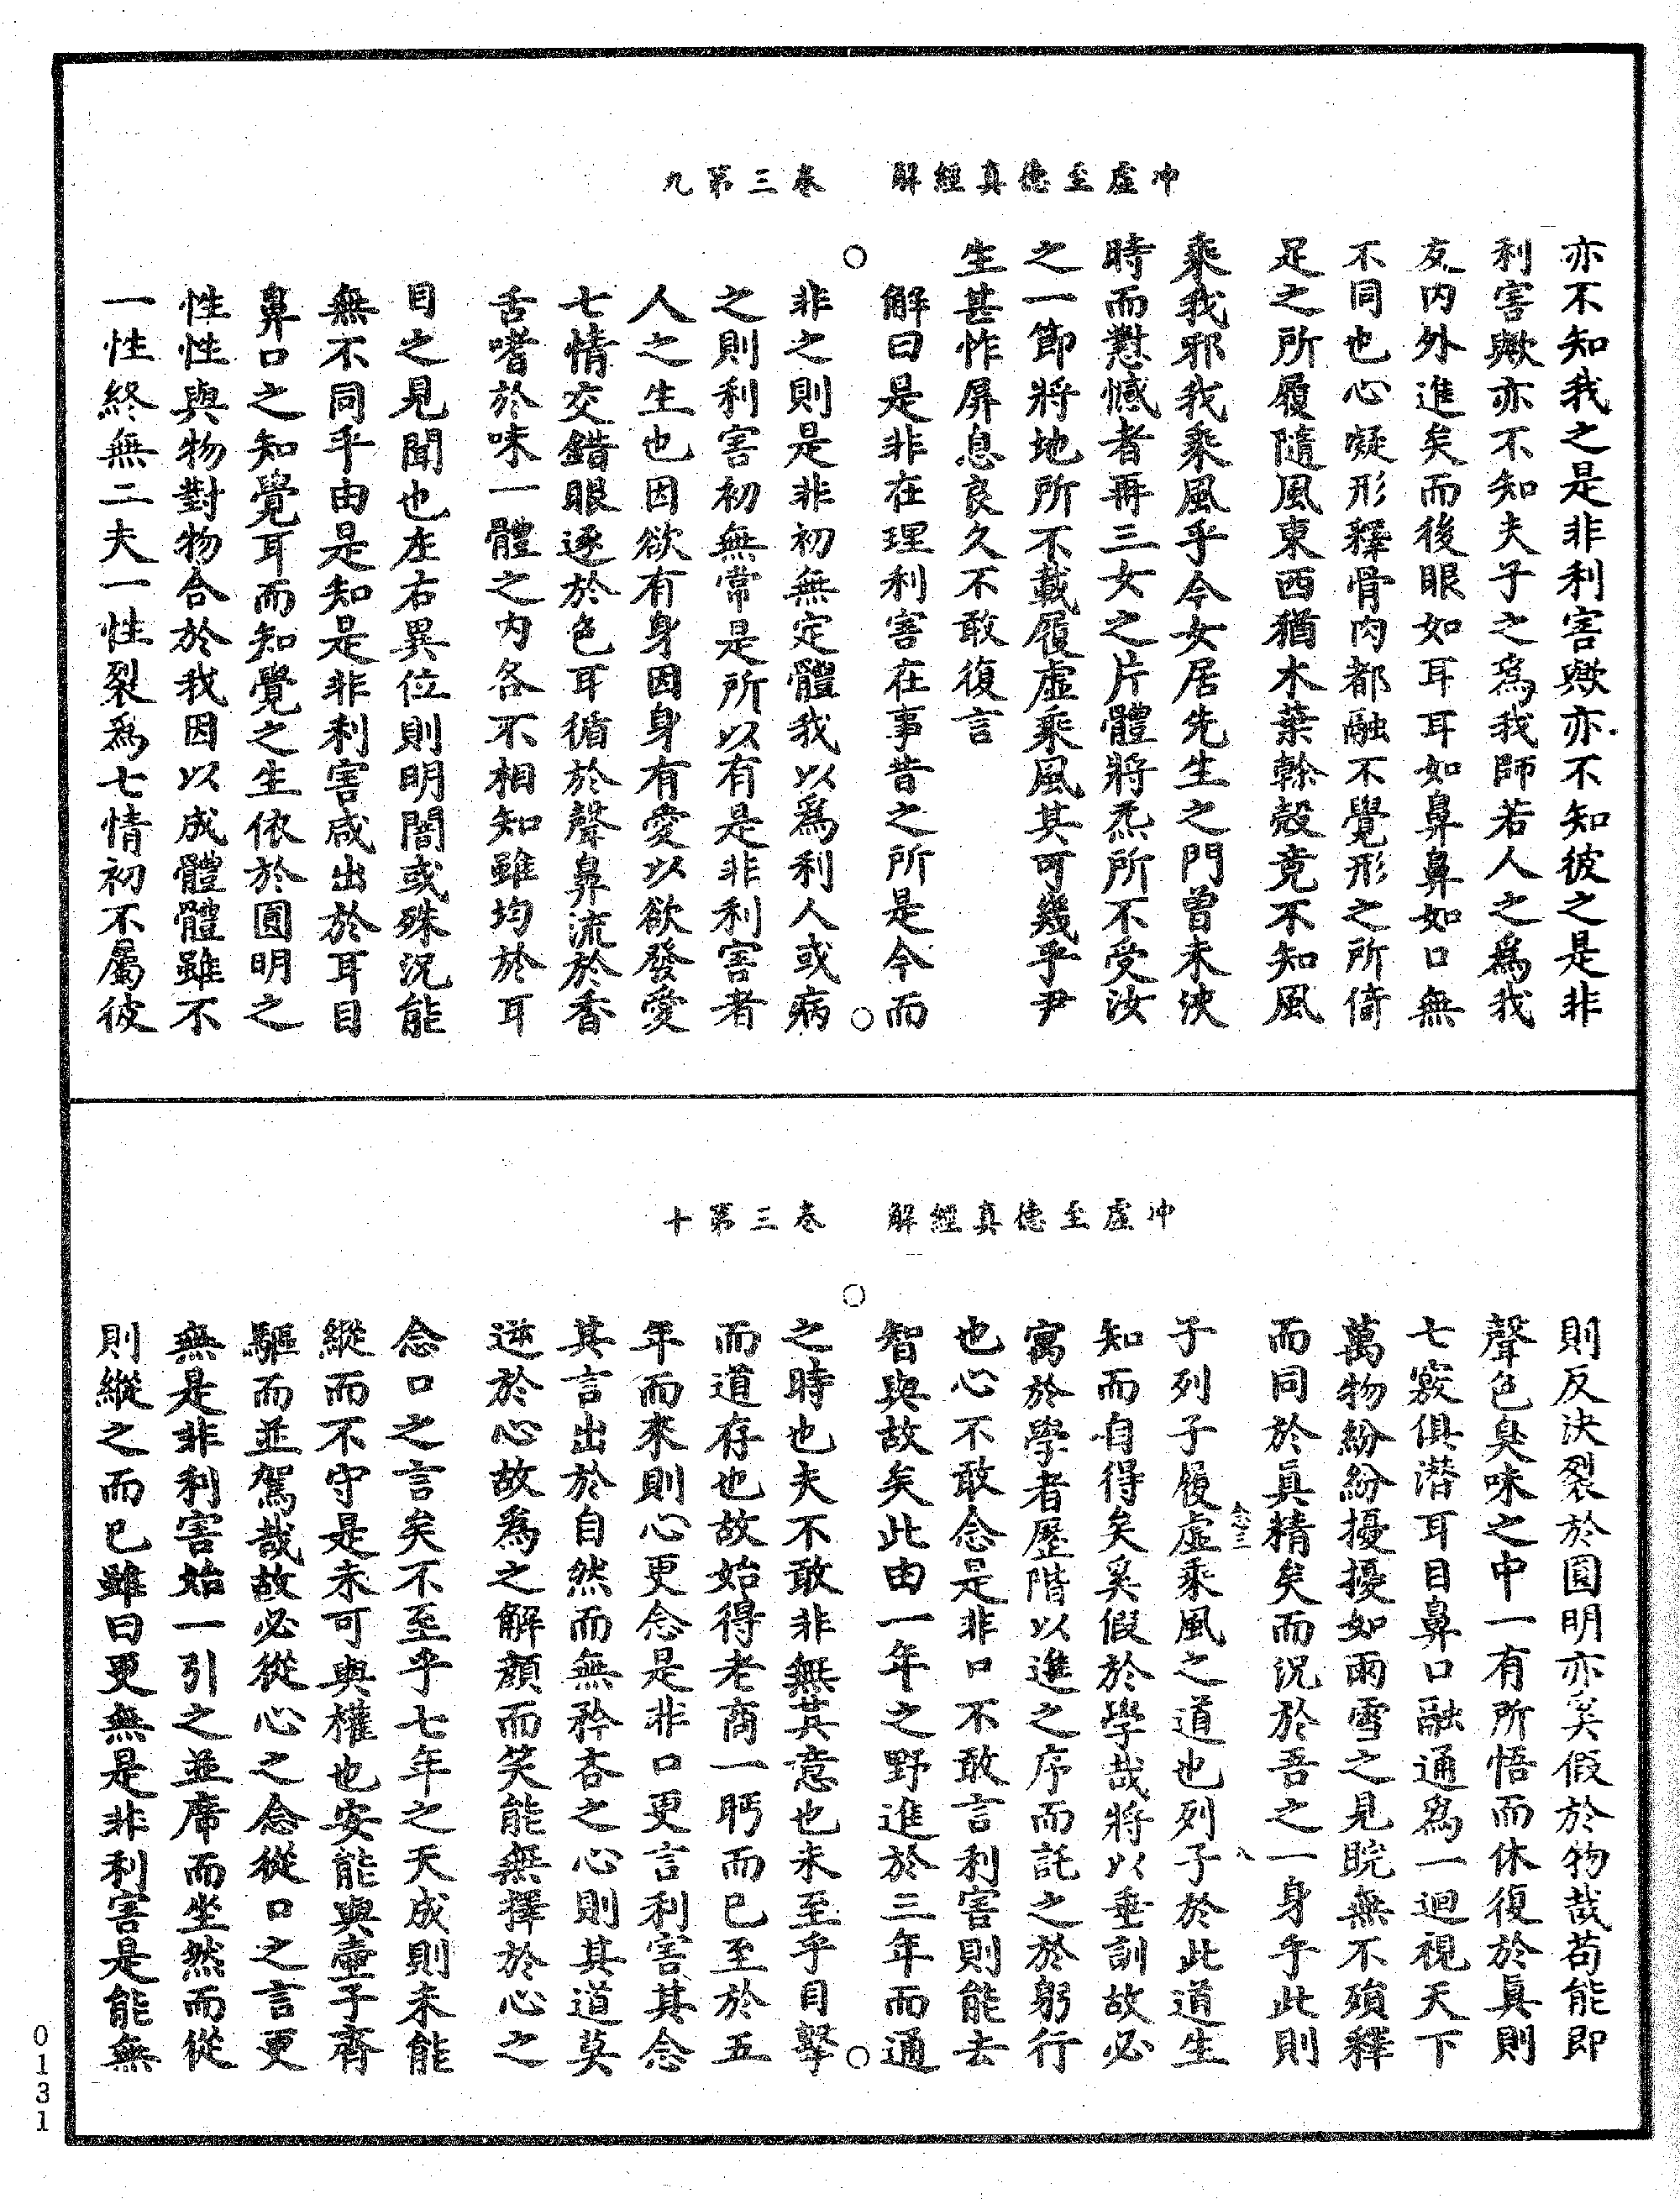 冲虛至德真經解　卷三第九
亦不知我之是非利害歟亦不知彼之是非
利害歟亦不知夫子之爲我師若人之爲我
友内外進矣而後眼如耳耳如鼻鼻如口無
不同也心凝形釋骨肉都融不覺形之所倚
足之所履隨風東西猶木葉榦殼竟不知風
乘我邪我乘風乎今女居先生之門曾未浹
時而懟憾者再三女之片體將炁所不受汝
之一節將地所不載履虛乘風其可幾乎尹
生甚怍屏息良久不敢復言
解曰是非在理利害在事昔之所是今而
非之則是非初無定體我以爲利人或病
之則利害初無常是所以有是非利害者
人之生也因欲有身因身有愛以欲發愛
七情交錯眼逐於色耳循於聲鼻流於香
舌嗜於味一體之内各不相知雖均於耳
目之見聞也左右異位則明闇或殊況能
無不同乎由是知是非利害咸出於耳目
鼻口之知覺耳而知覺之生依於圓明之
性性與物對物合於我因以成體體雖不
一性終無二夫一性裂爲七情初不屬彼
冲虛至德真經解　卷三第十
則反決裂於圓明亦奚假於物哉苟能即
聲色臭味之中一有所悟而休復於真則
七竅俱潛耳目鼻口融通爲一迴視天下
萬物紛紛擾擾如雨雪之見睍無不殞釋
而同於真精矣而況於吾之一身乎此則
念三
八
子列子履虛乘風之道也列子於此道生
知而自得矣奚假於學哉將以垂訓故必
寓於學者歷階以進之序而託之於躬行
也心不敢念是非口不敢言利害則能去
智與故矣此由一年之野進於三年而通
之時也夫不敢非無其意也未至乎目擊
而道存也故始得老商一眄而已至於五
年而來則心更念是非口更言利害其念
其言出於自然而無矜吝之心則其道莫
逆於心故爲之解顏而笑能無擇於心之
念口之言矣不至乎七年之天成則未能
縱而不守是未可與權也安能與壷子齊
驅而並駕哉故必從心之念從口之言更
無是非利害始一引之並席而坐然而從
則縱之而已雖曰更無是非利害是能無
0131